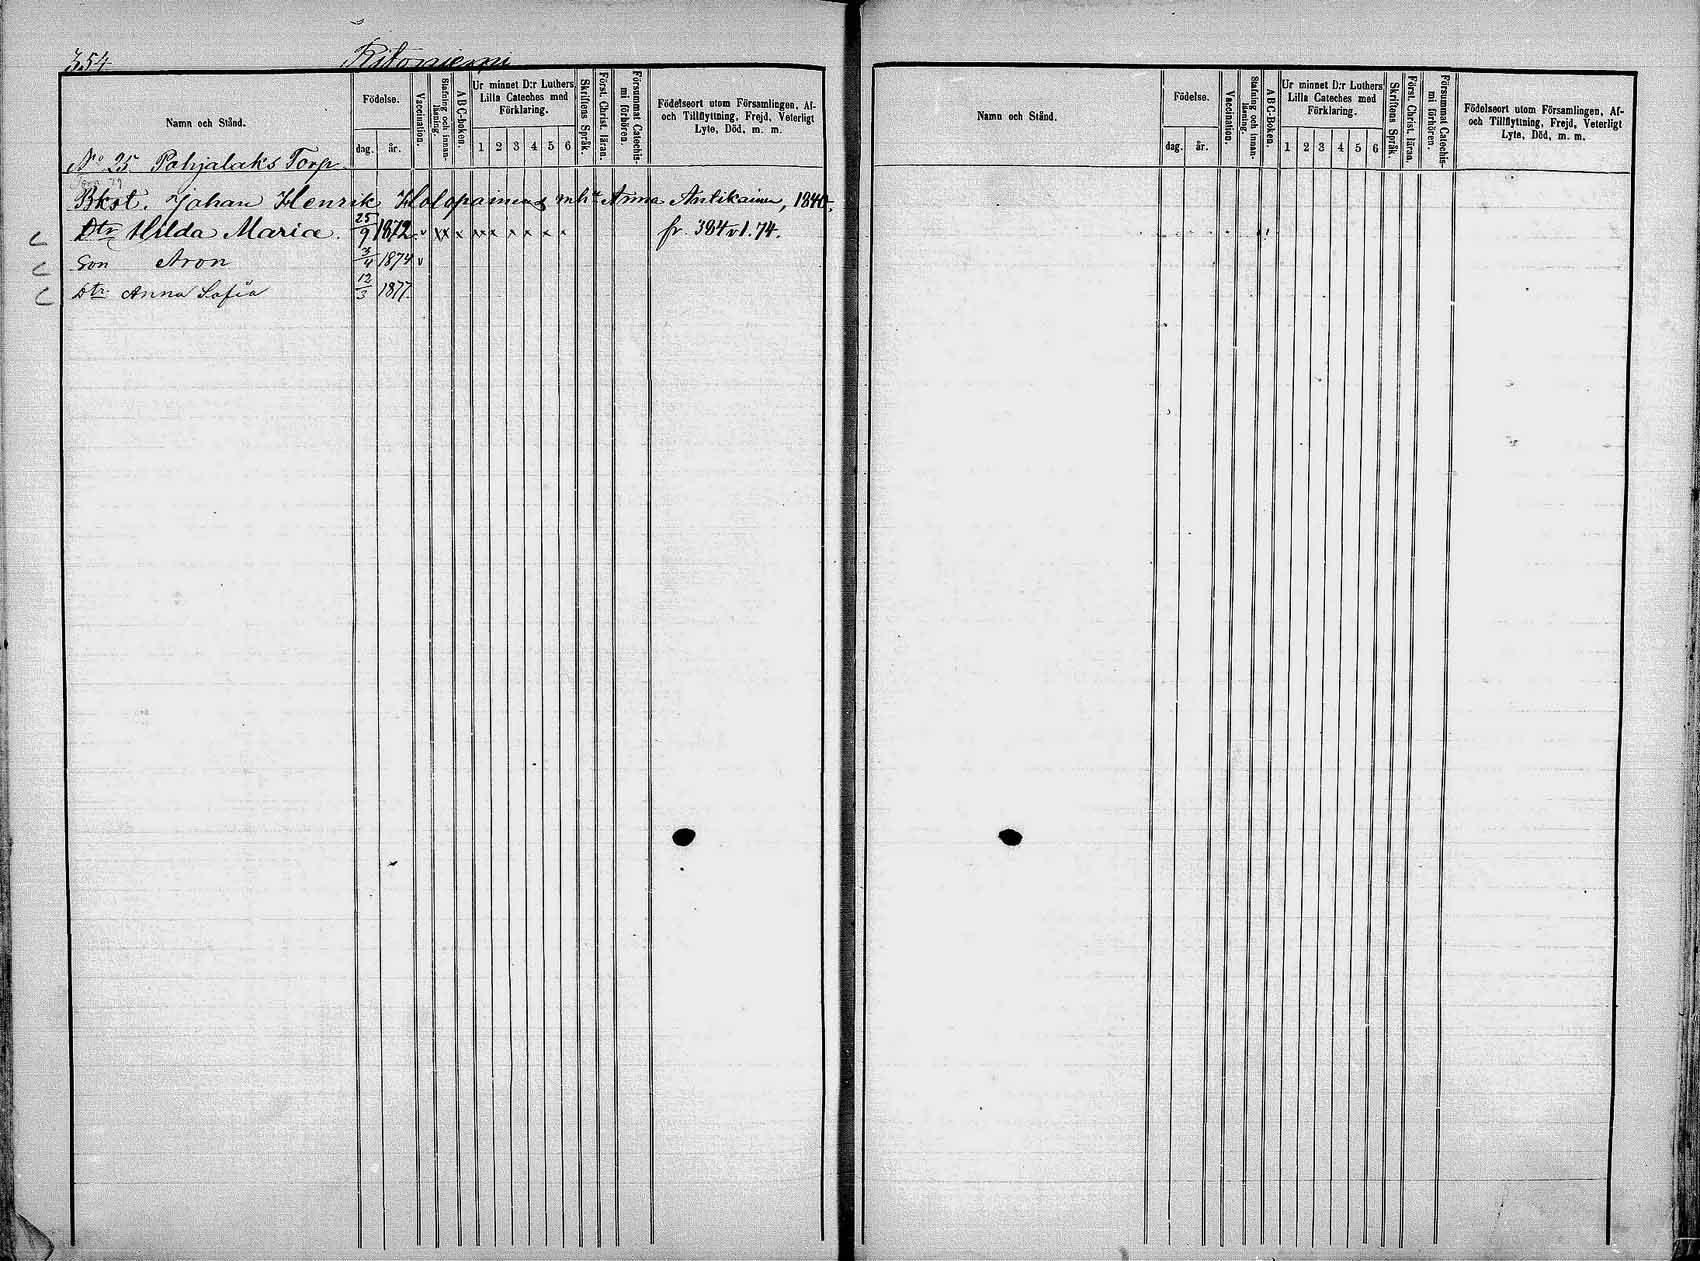 354 Ritoniemi
Namn och Stånd.
Födelse.
dag. år.
Vaccination.
Stafning och innan-
läsning.
ABC-boken.
Ur minnet D:r Luthers
Lilla Cateches med
Förklaring.
1 2 3 4 5 6
Skriftens Språk.
Först. Christ. läran.
Försummat Catechis-
mi förhören.
Födelseort utom Församlingen, Af-
och Tillflyttning, Frejd, Veterligt
Lyte, Död, m. m.
No 25 Pohjalaks Torp
Bkst. Johan Henrik Holopainens mh:u Anna Antikainen, 1840.
Dtr Hilda Maria. 25/9 1872. v xx x xx x x x x x fr. 384 v 1.74.
Son Aron 3/4 1874 v
Dtr. Anna Sofia 12/3 1877.
Namn och Stånd.
Födelse.
dag. år.
Vaccination.
Stafning och innan-
läsning.
ABC-Boken.
Ur minnet D:r Luthers
Lilla Cateches med
Förklaring.
1 2 3 4 5 6
Skriftens Språk.
Först. Christ. läran.
Försummat Catechis-
mi förhören.
Födelseort utom Församlingen, Af-
och Tillflyttning, Frejd, Veterligt
Lyte, Död, m. m.